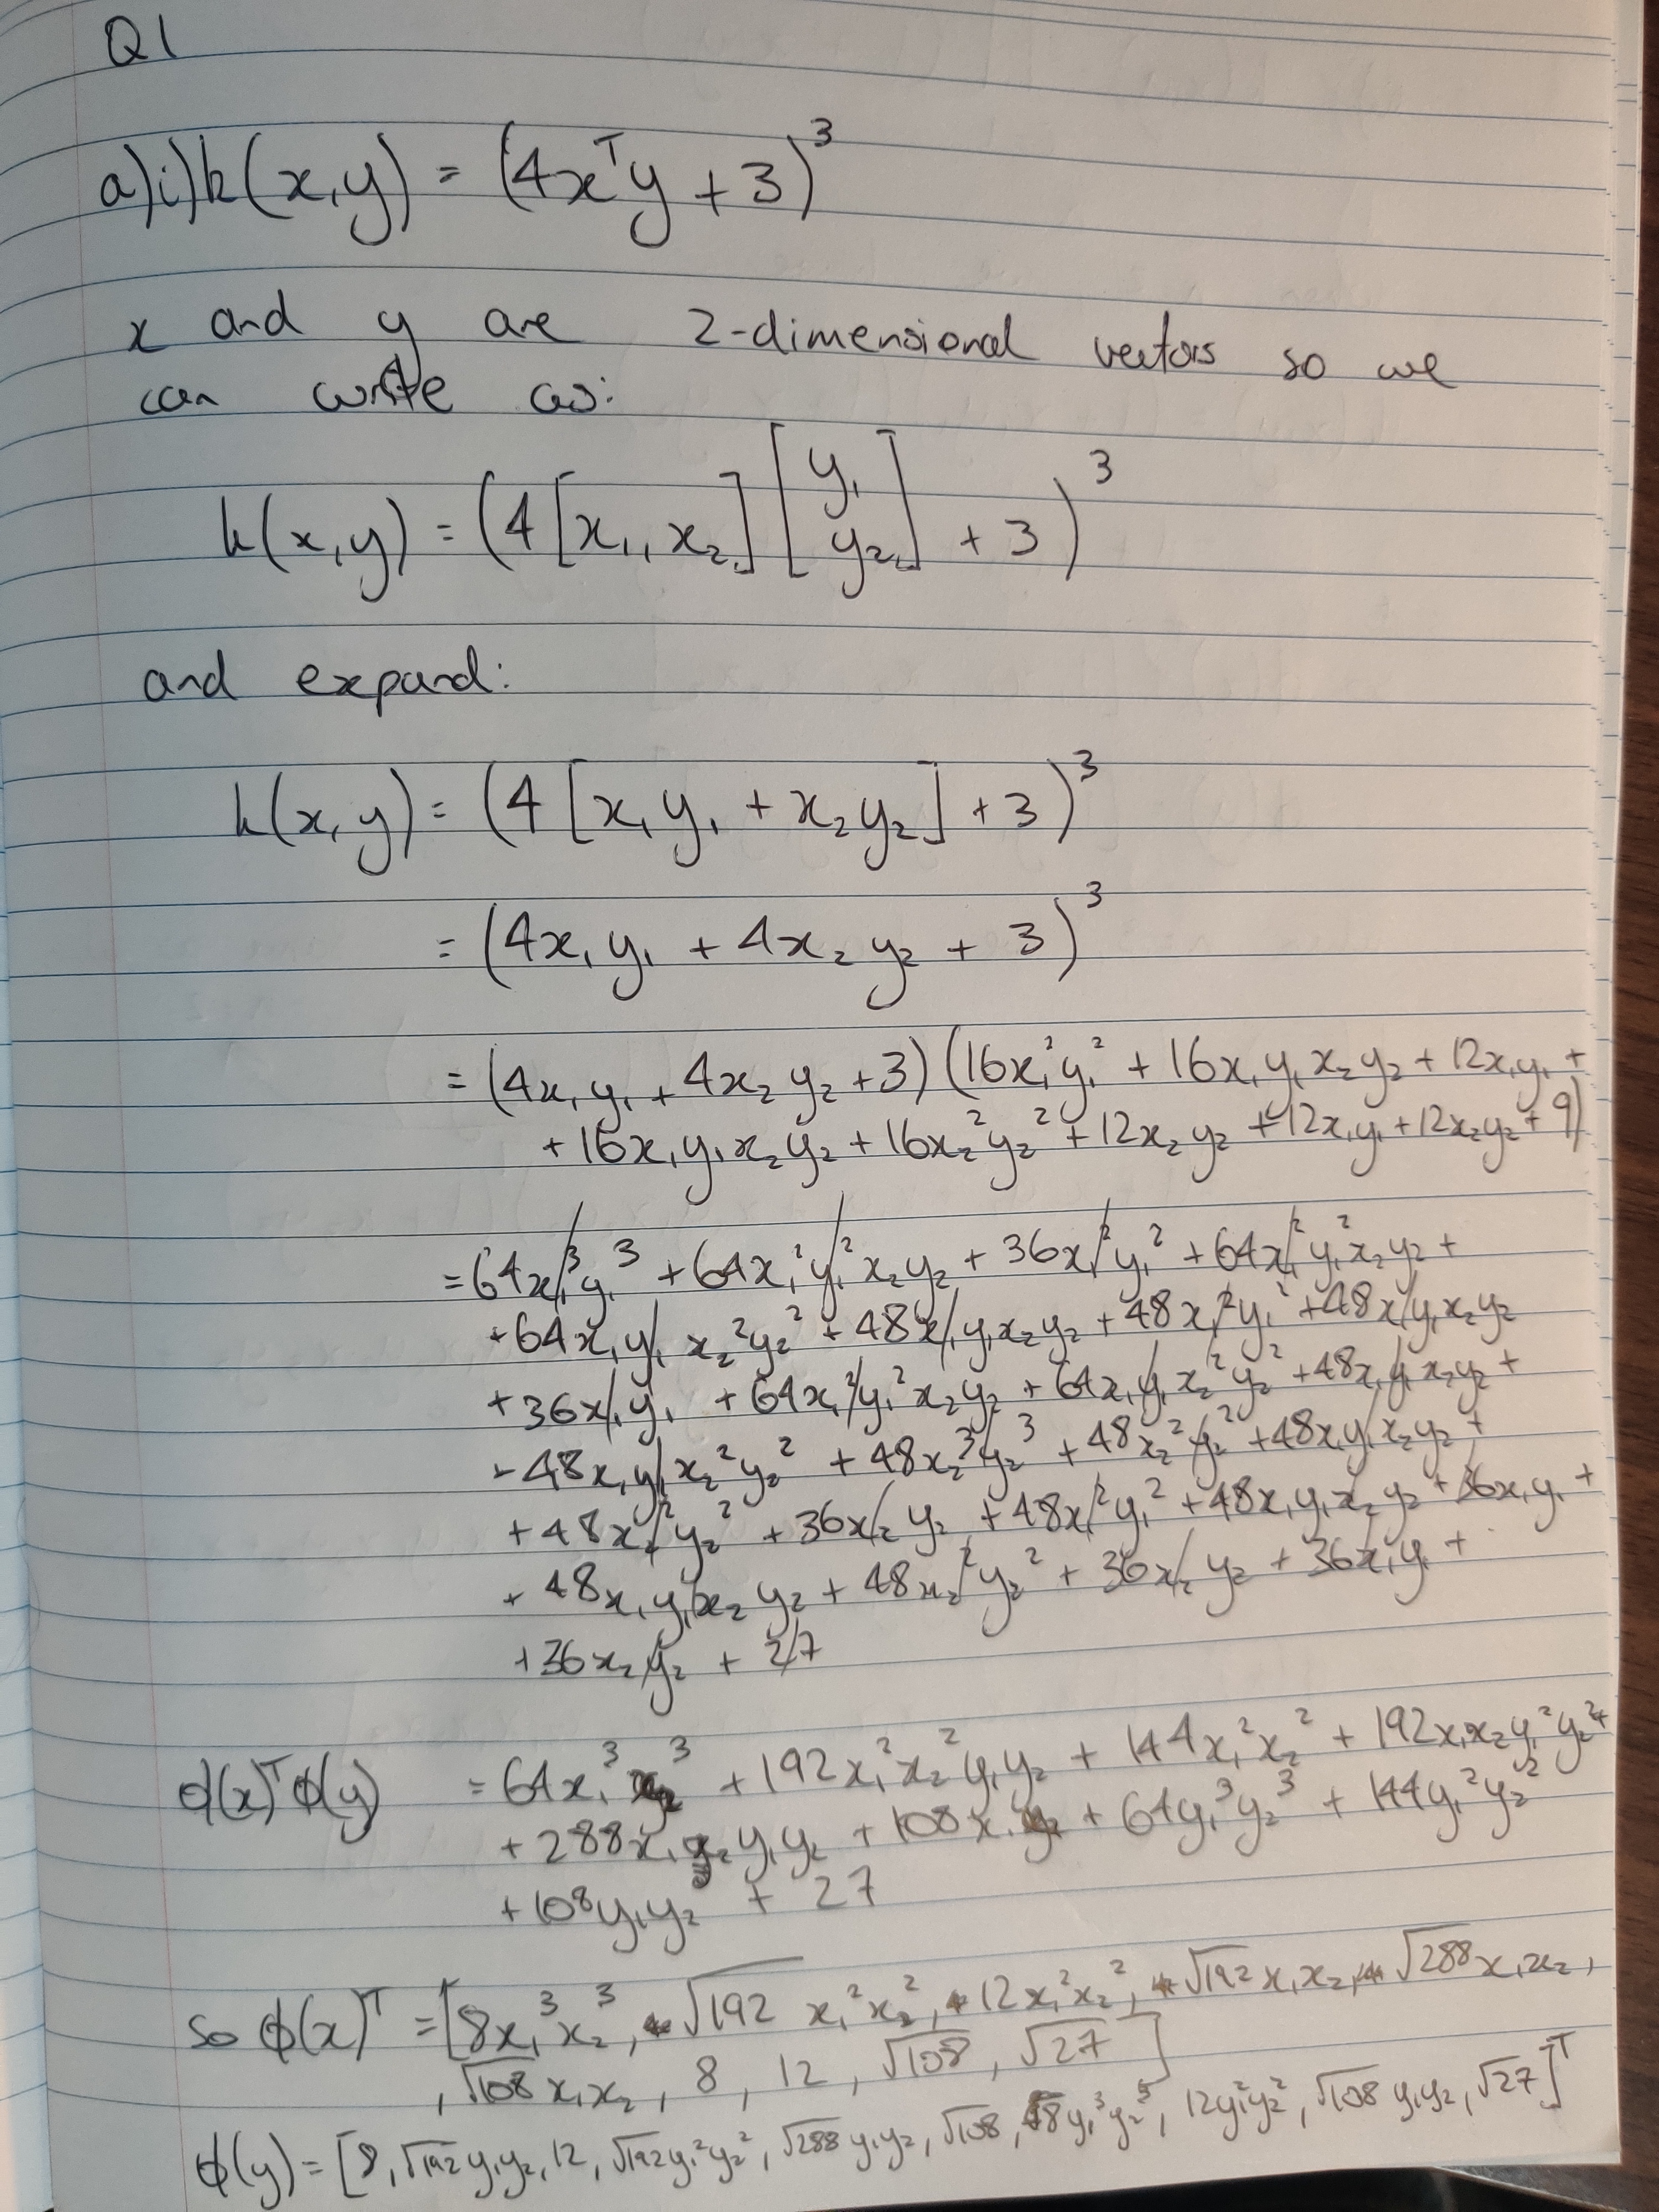 Q1
a)i) k(x,y) = (4xᵀy + 3)³
x and y are 2-dimensional vectors so we
can write as:
k(x,y) = (4[x₁, x₂][y₁ y₂] + 3)³
and expand:
k(x,y) = (4[x₁y₁ + x₂y₂] + 3)³
= (4x₁y₁ + 4x₂y₂ + 3)³
= (4x₁y₁ + 4x₂y₂ + 3)(16x₁²y₁² + 16x₁y₁x₂y₂ + 12x₁y₁ +
+ 16x₁y₁x₂y₂ + 16x₂²y₂² + 12x₂y₂ + 12x₁y₁ + 12x₂y₂ + 9)
= 64x₁³y₁³ + 64x₁²y₁²x₂y₂ + 36x₁²y₁² + 64x₁²y₁²x₂y₂ +
+ 64x₁y₁x₂²y₂² + 48x₁y₁x₂y₂ + 48x₁²y₁² + 48x₁y₁x₂y₂
+ 36x₁y₁ + 64x₁²y₁²x₂y₂ + 64x₁y₁x₂²y₂² + 48x₁y₁x₂y₂ +
+ 48x₁y₁x₂²y₂² + 48x₂³y₂³ + 48x₂²y₂² + 48x₁y₁x₂y₂ +
+ 48x₂²y₂² + 36x₂y₂ + 48x₁²y₁² + 48x₁y₁x₂y₂ + 36x₁y₁ +
+ 48x₁y₁x₂y₂ + 48x₂²y₂² + 36x₂y₂ + 36x₁y₁ +
+ 36x₂y₂ + 27
ϕ(x)ᵀϕ(y) = 64x₁³x₂³ + 192x₁²x₂²y₁y₂ + 144x₁²x₂² + 192x₁x₂y₁²y₂² +
+ 288x₁x₂y₁y₂ + 108x₁x₂ + 64y₁³y₂³ + 144y₁²y₂²
+ 108y₁y₂ + 27
so ϕ(x)ᵀ = [8x₁³x₂³, √192 x₁²x₂², 12x₁²x₂², √192 x₁x₂, √288 x₁x₂,
, √108 x₁x₂, 8, 12, √108, √27]
ϕ(y) = [8, √192 y₁y₂, 12, √192 y₁²y₂², √288 y₁y₂, √108, 8y₁³y₂³, 12y₁²y₂², √108 y₁y₂, √27]ᵀ